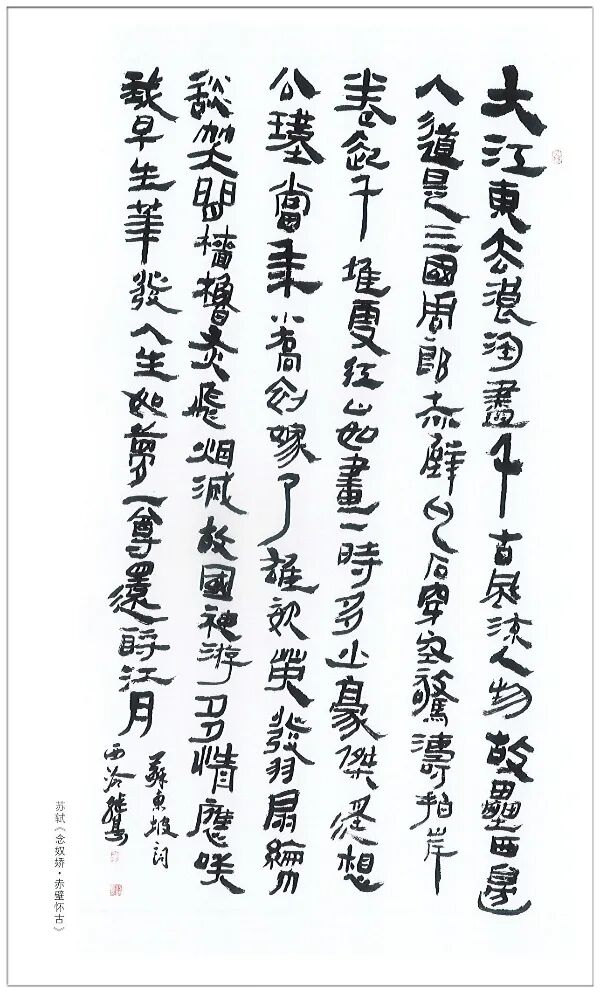 大江東去浪淘盡千古風流人物故壘西邊
人道是三國周郎赤壁乱石穿空驚濤拍岸
卷起千堆雪江山如畫一時多少豪傑遥想
公瑾當年小喬初嫁了雄姿英發羽扇綸巾
談笑間檣櫓灰飛烟滅故國神游多情應笑
我早生華發人生如夢一尊還酹江月
蘇東坡詞
西泠
苏轼《念奴娇·赤壁怀古》